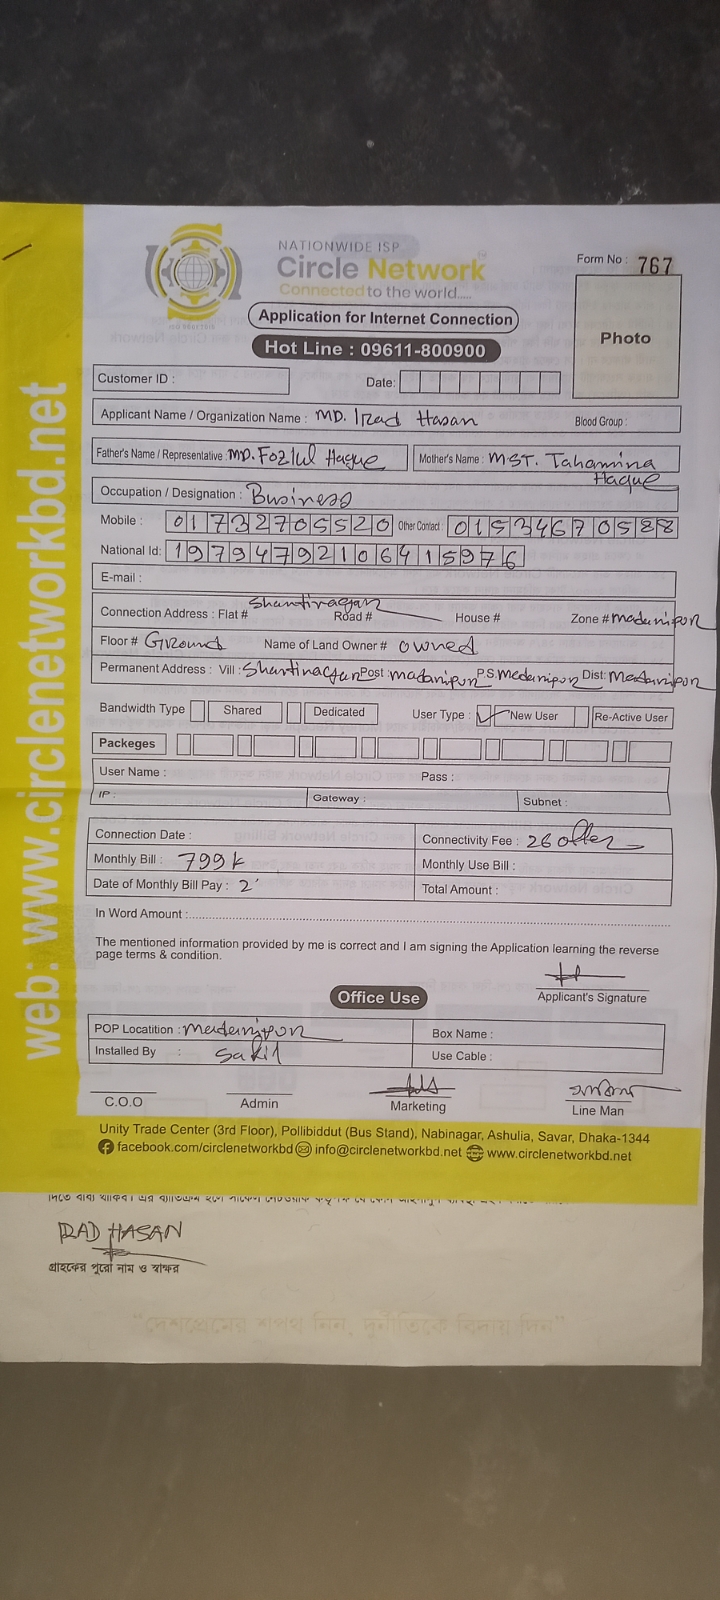 web: www.circlenetworkbd.net
NATIONWIDE ISP
Circle Network
Connected to the world.....
Application for Internet Connection
Hot Line : 09611-800900
Form No : 767
Photo
Customer ID :
Date:
Applicant Name / Organization Name : MD. Irad Hasan Blood Group :
Father's Name / Representative : MD. Fozlul Haque Mother's Name : MST. Tahamina Haque
Occupation / Designation : Business
Mobile : 01732705520 Other Contact : 01534670588
National Id: 19794792106415976
E-mail :
Connection Address : Flat # Shantinagar Road # House # Zone # madaripur
Floor # Ground Name of Land Owner # owned
Permanent Address : Vill : Shantinagar Post : madaripur P.S. Madaripur Dist: Madaripur
Bandwidth Type Shared Dedicated User Type : New User Re-Active User
Packeges
User Name : Pass :
IP : Gateway : Subnet :
Connection Date : Connectivity Fee : 26 offer
Monthly Bill : 799 k Monthly Use Bill :
Date of Monthly Bill Pay : 2 Total Amount :
In Word Amount :
The mentioned information provided by me is correct and I am signing the Application learning the reverse
page terms & condition.
Applicant's Signature
Office Use
POP Locatition : Madaripur Box Name :
Installed By : Sakil Use Cable :
C.O.O Admin Marketing Line Man
Unity Trade Center (3rd Floor), Pollibiddut (Bus Stand), Nabinagar, Ashulia, Savar, Dhaka-1344
facebook.com/circlenetworkbd info@circlenetworkbd.net www.circlenetworkbd.net
IRAD HASAN
গ্রাহকের পুরো নাম ও স্বাক্ষর
"দেশপ্রেমের শপথ নিন, দুর্নীতিকে বিদায় দিন"